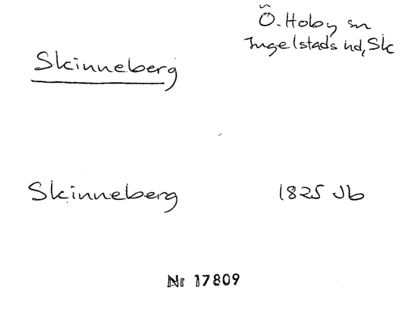 Ö. Hoby sn
Ingelstads hd, Sk
Skinneberg
Skinneberg 1825 Jb
Nr 17809